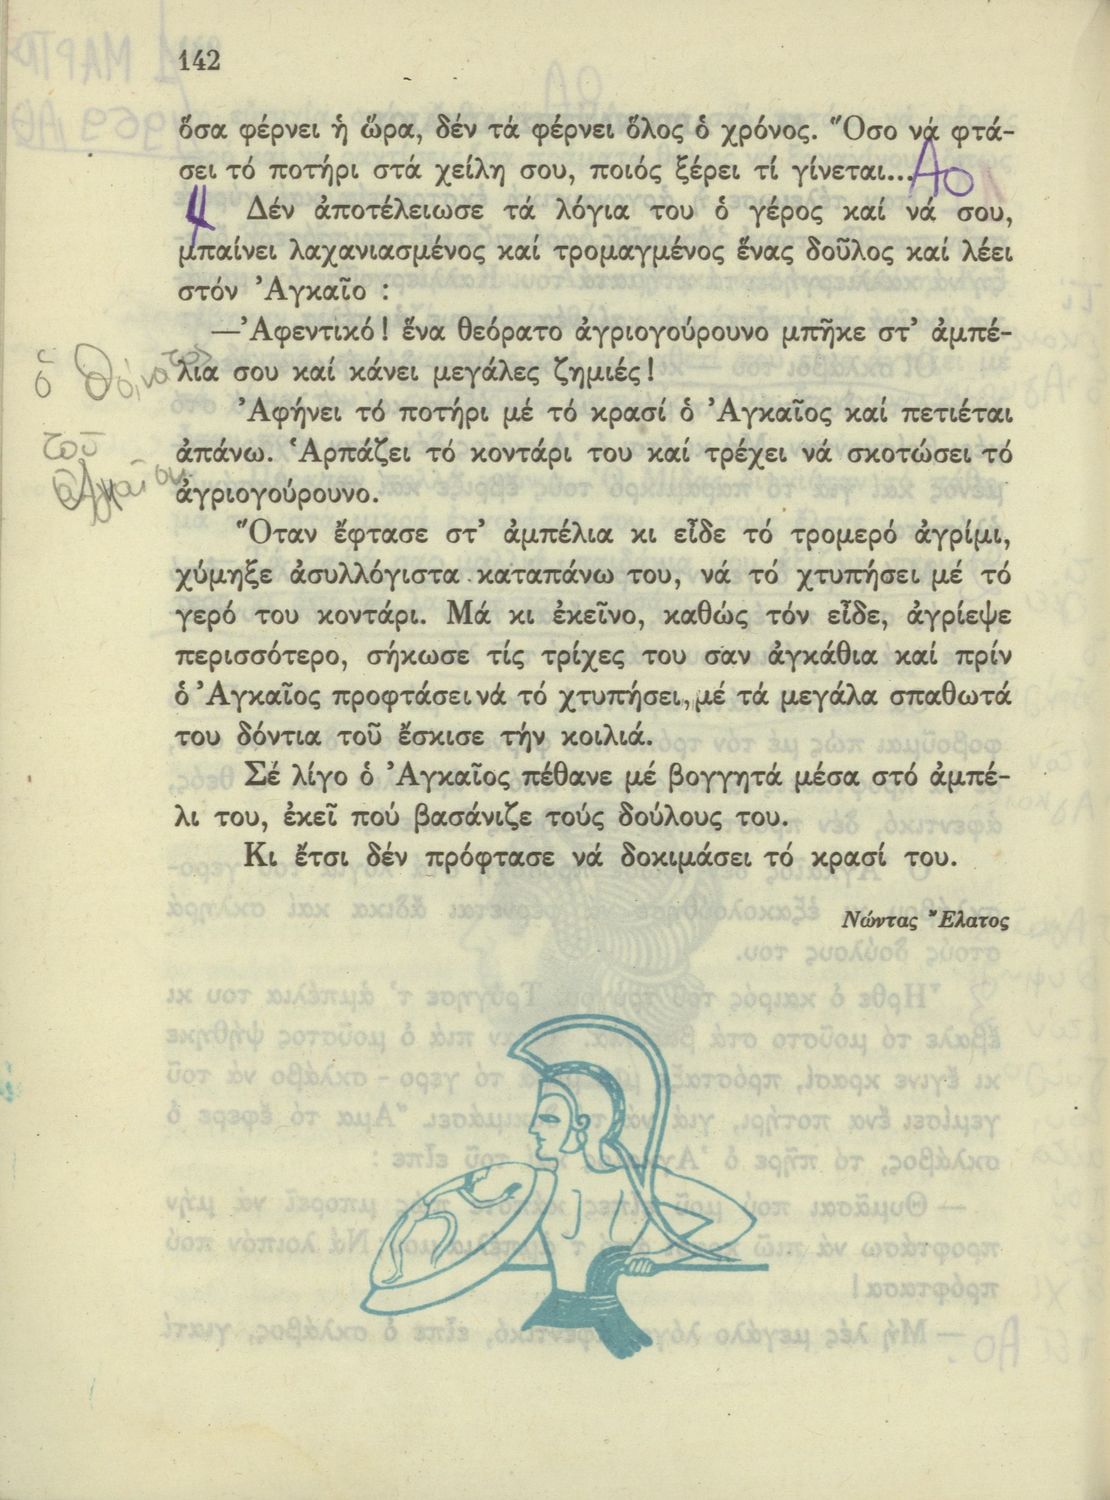 142
ὅσα φέρνει ἡ ὥρα, δέν τά φέρνει ὅλος ὁ χρόνος. Ὅσο νά φτά-
σει τό ποτήρι στά χείλη σου, ποιός ξέρει τί γίνεται... Αο
4 Δέν ἀποτέλειωσε τά λόγια του ὁ γέρος καί νά σου,
μπαίνει λαχανιασμένος καί τρομαγμένος ἕνας δοῦλος καί λέει
στόν Ἀγκαῖο :
—Ἀφεντικό! ἕνα θεόρατο ἀγριογούρουνο μπῆκε στ’ ἀμπέ-
λια σου καί κάνει μεγάλες ζημιές!
Ἀφήνει τό ποτήρι μέ τό κρασί ὁ Ἀγκαῖος καί πετιέται
ἀπάνω. Ἁρπάζει τό κοντάρι του καί τρέχει νά σκοτώσει τό
ἀγριογούρουνο.
Ὅταν ἔφτασε στ’ ἀμπέλια κι εἶδε τό τρομερό ἀγρίμι,
χύμηξε ἀσυλλόγιστα καταπάνω του, νά τό χτυπήσει μέ τό
γερό του κοντάρι. Μά κι ἐκεῖνο, καθώς τόν εἶδε, ἀγρίεψε
περισσότερο, σήκωσε τίς τρίχες του σαν ἀγκάθια καί πρίν
ὁ Ἀγκαῖος προφτάσει νά τό χτυπήσει, μέ τά μεγάλα σπαθωτά
του δόντια τοῦ ἔσκισε τήν κοιλιά.
Σέ λίγο ὁ Ἀγκαῖος πέθανε μέ βογγητά μέσα στό ἀμπέ-
λι του, ἐκεῖ πού βασάνιζε τούς δούλους του.
Κι ἔτσι δέν πρόφτασε νά δοκιμάσει τό κρασί του.
Νώντας Ἔλατος
ὁ θάνατος
τοῦ
Ἀγκαίου